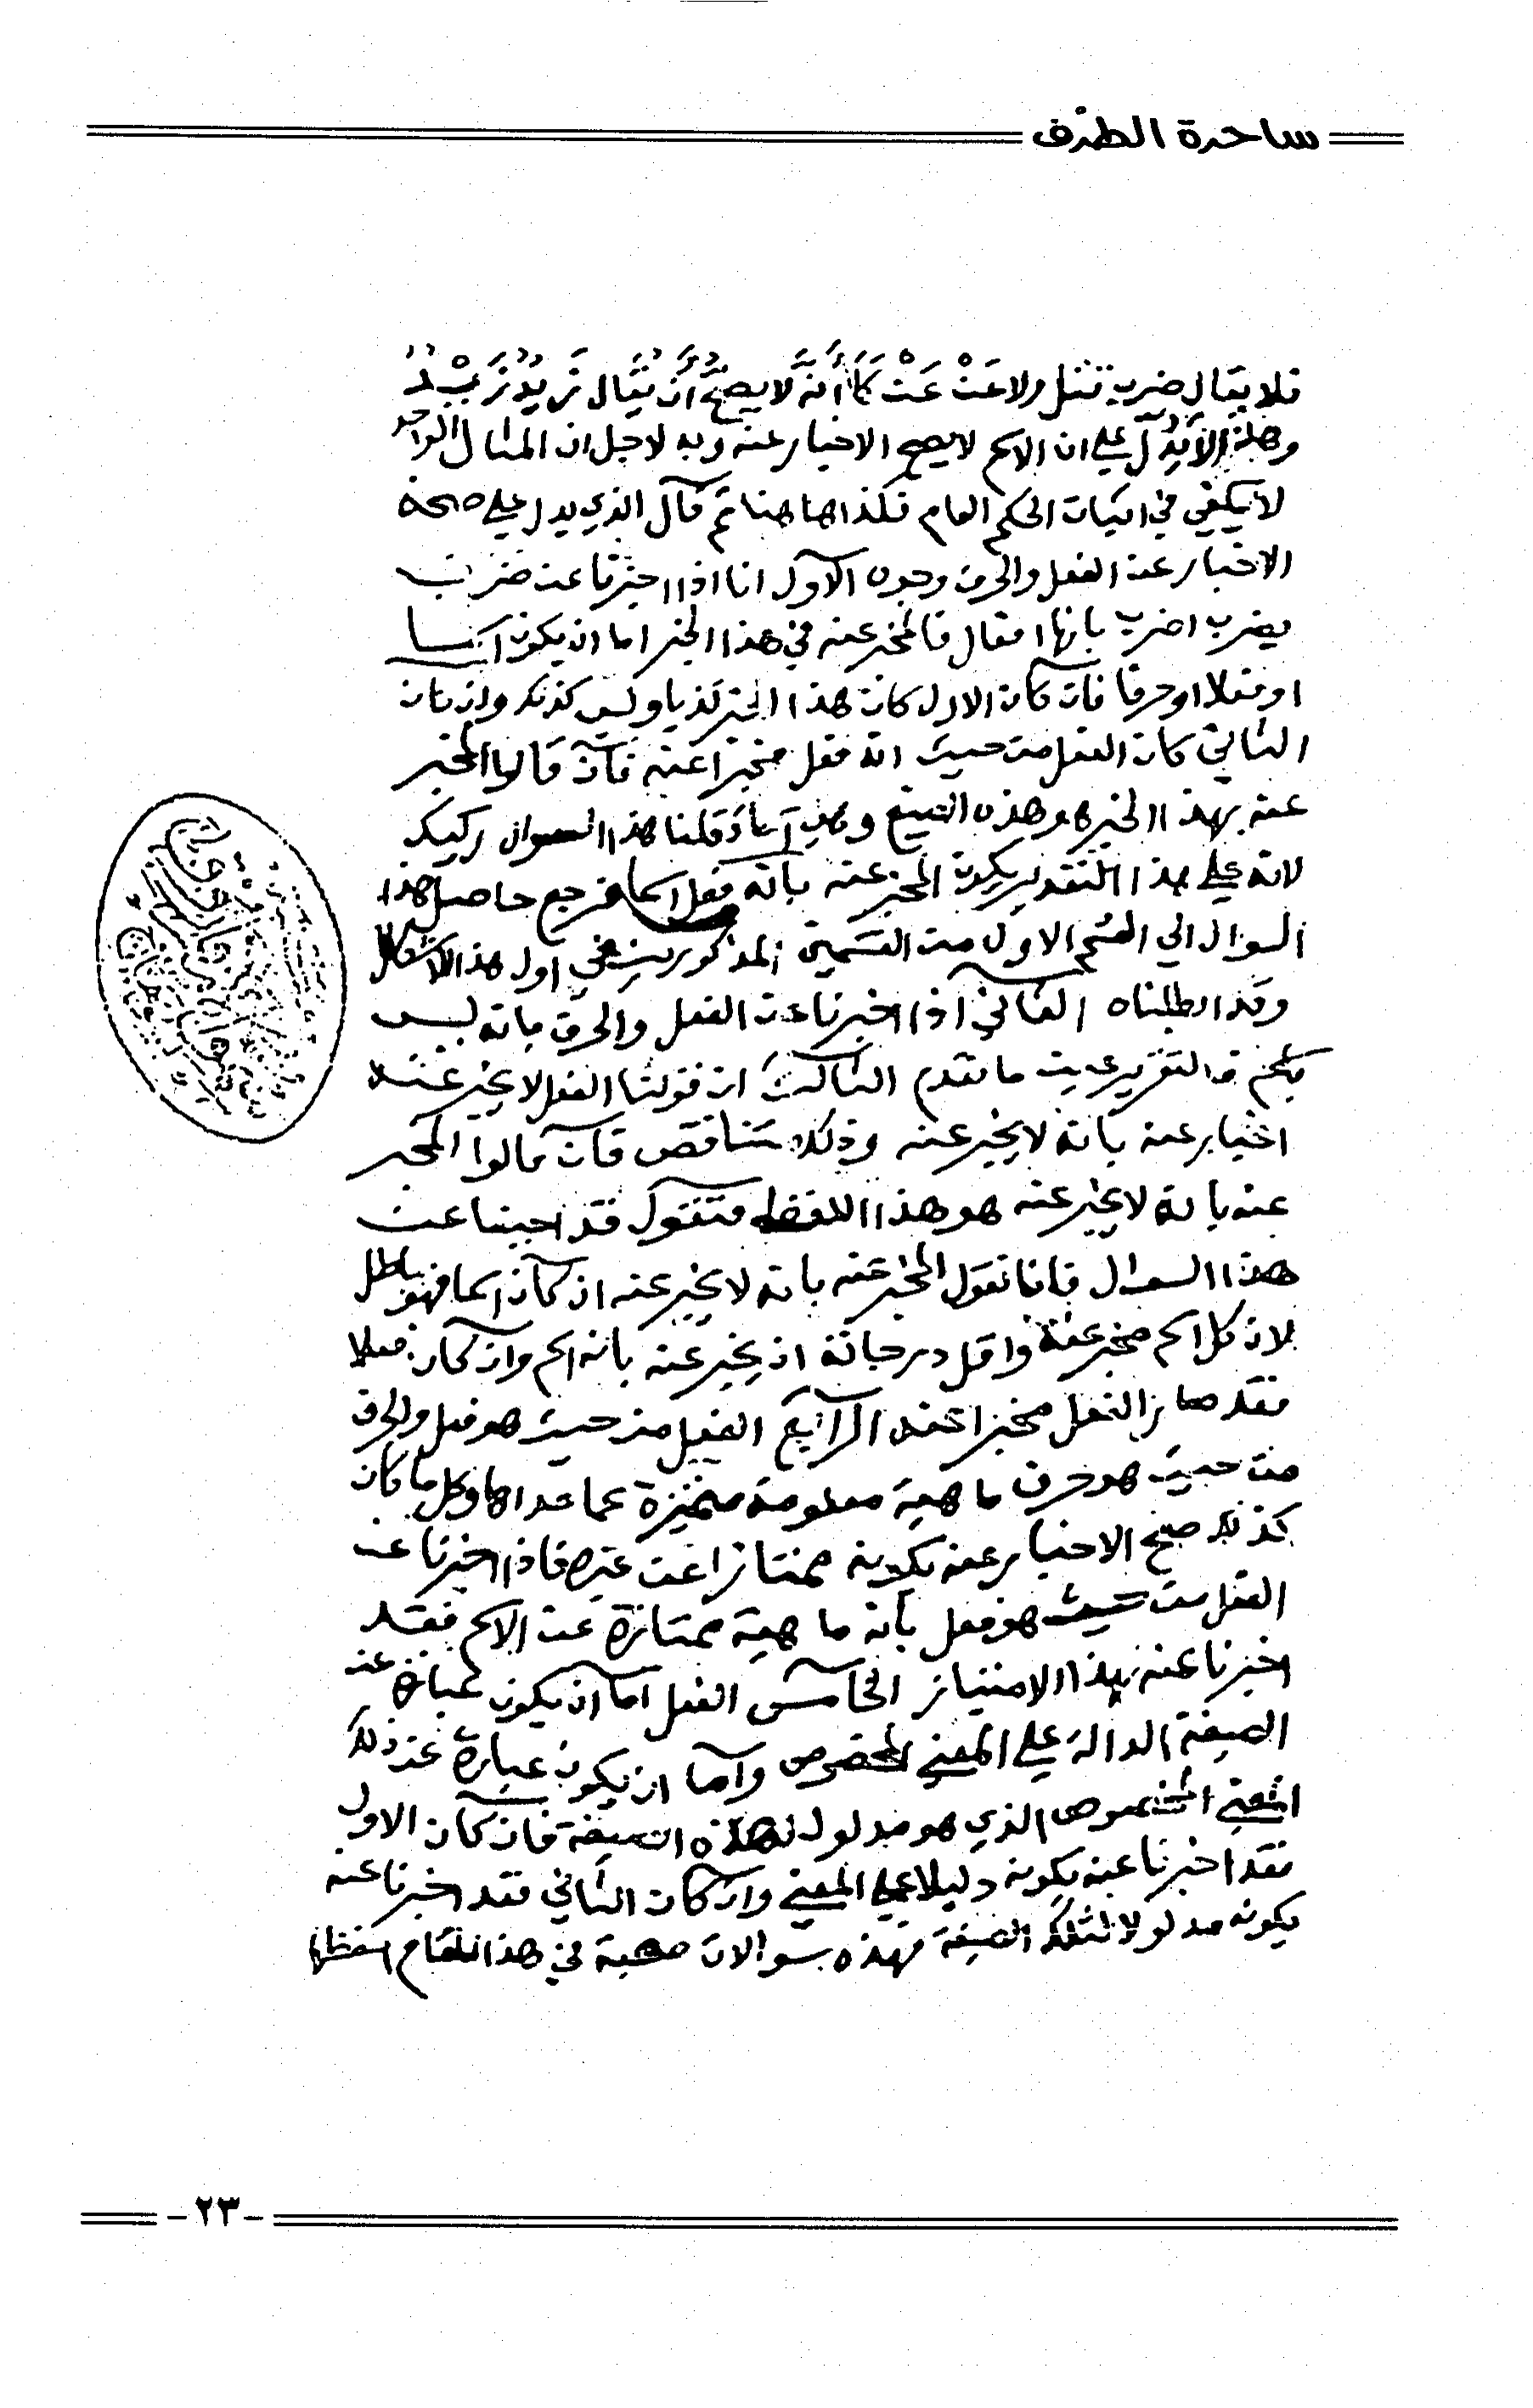 ساحرة الطرف
فلا يقال ضرب قتل ولا عَنْ عَنْ كما أنَّه لا يصحّ أن يقال زيدٌ زيدٌ
وهذا لا يدل على ان الاسم لا يصح الاخبار عنه وبه لاجل ان المثال الواحد
لا يكفي في اثبات الحكم العام فكذا هاهنا ثم قال الذي يدل على صحة
الاخبار عن الفعل والحرف وجوه الاول انا اذا اخبرنا عن ضرب
يضرب اضرب بانها افعال فالمخبر عنه في هذا الخبر اما ان يكون اسما
او فعلا او حرفا فان كان الاول كان هذا الخبر كذبا وليس كذلك وان كان
الثاني كان الفعل من حيث انه فعل مخبرا عنه فان قالوا المخبر
عنه بهذا الخبر هو هذه الصيغ وهي اسماء قلنا هذا السوال ركيك
لانه على هذا التقدير يكون المخبر عنه بانه فعل اسما فرجع حاصل هذا
السوال الي القسم الاول من القسمين المذكورين في اول هذا الاشكال
وقد ابطلناه الثاني اذا اخبرنا عن الفعل والحرف بانه ليس
باسم فالتقرير عين ما تقدم الثالث ان قولنا الفعل لا يخبر عنه
اخبار عنه بانه لا يخبر عنه وذلك متناقض فان قالوا المخبر
عنه بانه لا يخبر عنه هو هذا اللفظ فنقول قد اجبنا عن
هذا السوال فانا نقول المخبر عنه بانه لا يخبر عنه ان كان اسما فهو باطل
لان كل اسم مخبر عنه واقل درجاته ان يخبر عنه بانه اسم وان كان فعلا
فقد صار الفعل مخبرا عنه الرابع الفعل من حيث هو فعل والحرف
من حيث هو حرف ماهية معلومة متميزة عما عداها وكل ما كان
كذلك صح الاخبار عنه بكونه ممتازا عن غيره فاذا اخبرنا عن
الفعل من حيث هو فعل بانه ماهية ممتازة عن الاسم فقد
اخبرنا عنه بهذا الامتياز الخامس الفعل اما ان يكون عبارة عن
الصيغة الدالة على المعنى المخصوص واما ان يكون عبارة عن ذلك
المعنى المخصوص الذي هو مدلول لهذه الصيغة فان كان الاول
فقد اخبرنا عنه بكونه دليلا على المعنى وان كان الثاني فقد اخبرنا عنه
بكونه مدلولا لتلك الصيغة فهذه سوالات صعبة في هذا المقام
-٢٣-